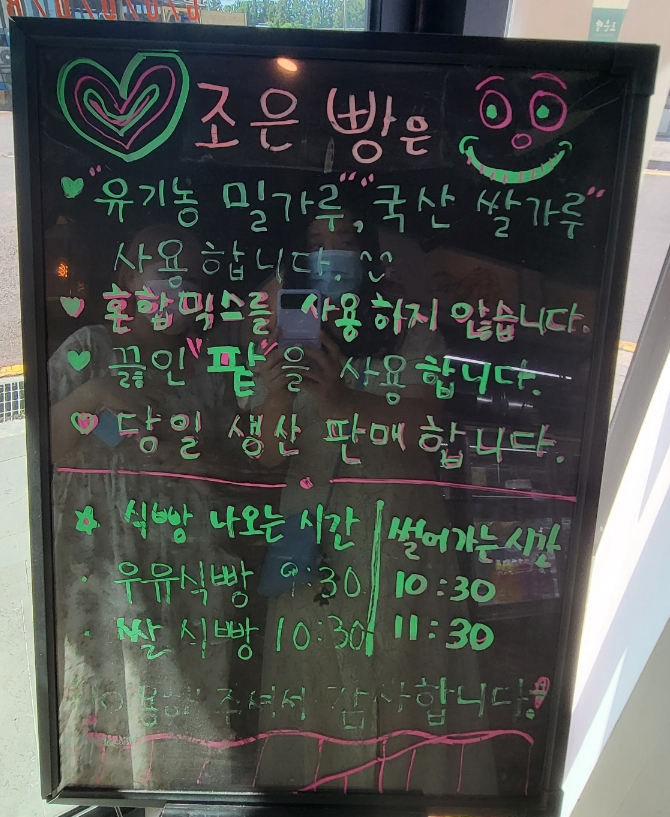 조은 빵은
"유기농 밀가루", "국산 쌀가루"
사용합니다. ^^
혼합믹스를 사용하지 않습니다.
끓인 "팥"을 사용합니다.
당일 생산 판매합니다.
식빵 나오는 시간 썰어가는시간
우유식빵 9:30 10:30
쌀식빵 10:30 11:30
이용해 주셔서 감사합니다!